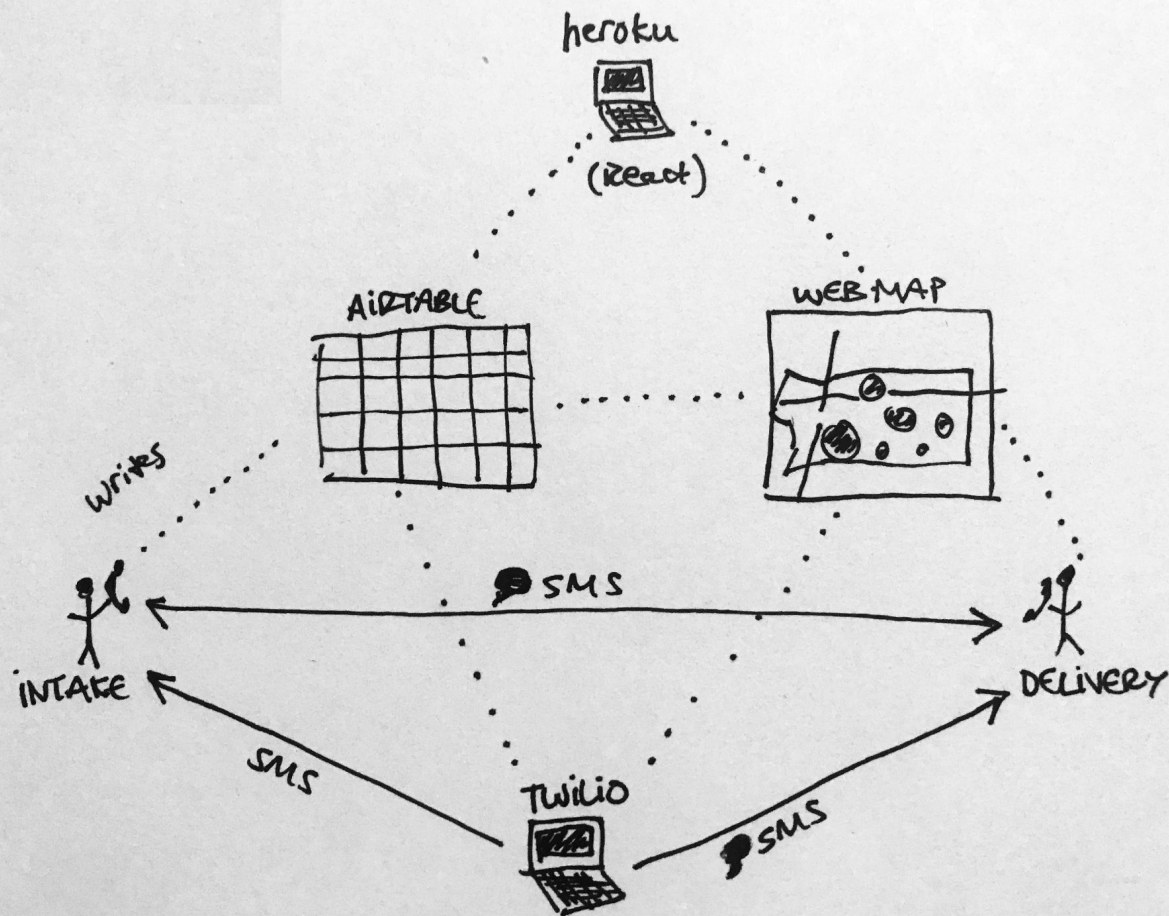 heroku
(React)
AIRTABLE
WEB MAP
writes
SMS
INTAKE
DELIVERY
SMS
TWILIO
SMS